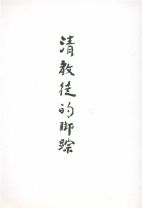 清教徒的脚踪